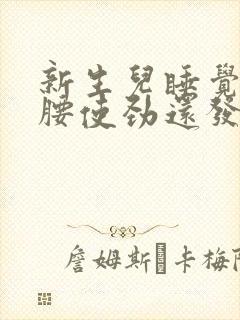 新生兒睡覺
腰使勁還發
詹姆斯 卡梅